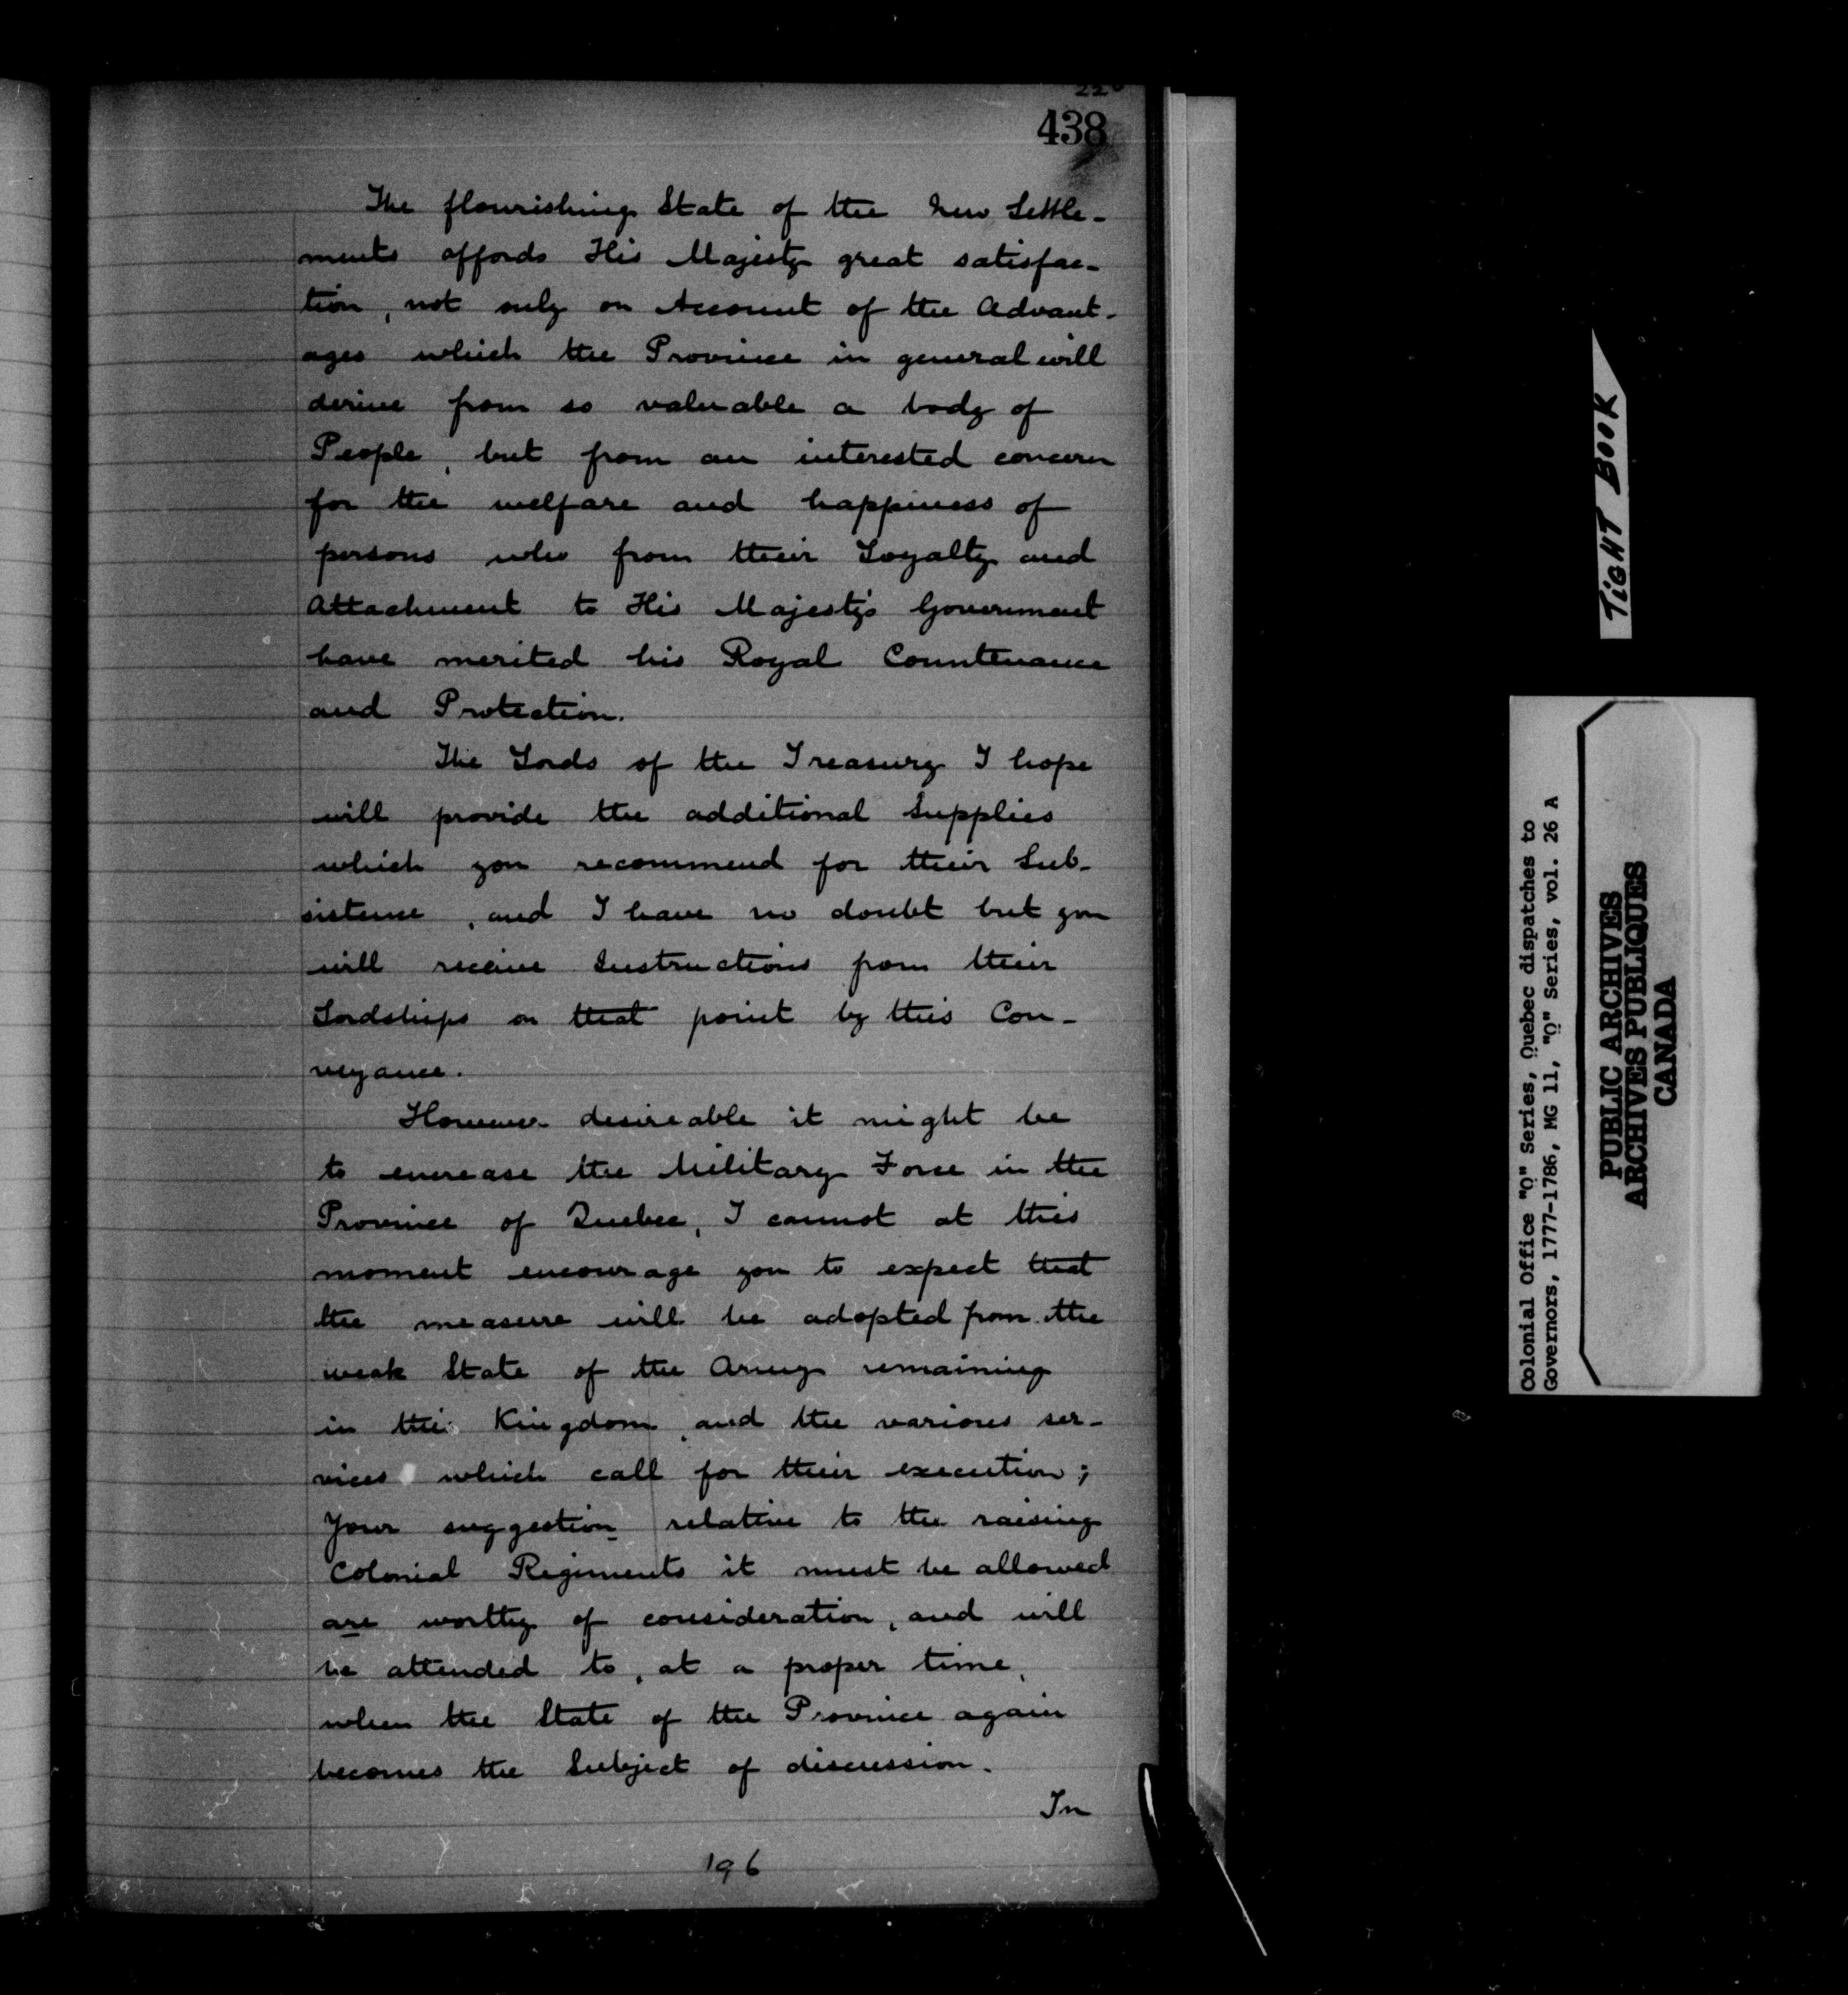 438
The flourishing State of the New Settle-
ments affords His Majesty great satisfac-
tion, not only on Account of the Advant-
ages which the Province in general will
derive from so valuable a body of
People, but from an interested concern
for the welfare and happiness of
persons who from their Loyalty and
Attachment to His Majesty's Government
have merited his Royal Countenance
and Protection.
The Lords of the Treasury I hope
will provide the additional Supplies
which you recommend for their Sub-
sistence, and I have no doubt but you
will receive Instructions from their
Lordships on that point by this Con-
veyance.
However desireable it might be
to encrease the Military Force in the
Province of Quebec, I cannot at this
moment encourage you to expect that
the measure will be adopted from the
weak State of the Army remaining
in this Kingdom, and the various ser-
vices which call for their execution;
Your suggestion relative to the raising
Colonial Regiments it must be allowed
are worthy of consideration, and will
be attended to, at a proper time,
when the State of the Province again
becomes the Subject of discussion.
In
196
TIGHT BOOK
Colonial Office "Q" Series, Quebec dispatches to
Governors, 1777-1786, MG 11, "Q" Series, vol. 26 A
PUBLIC ARCHIVES
ARCHIVES PUBLIQUES
CANADA